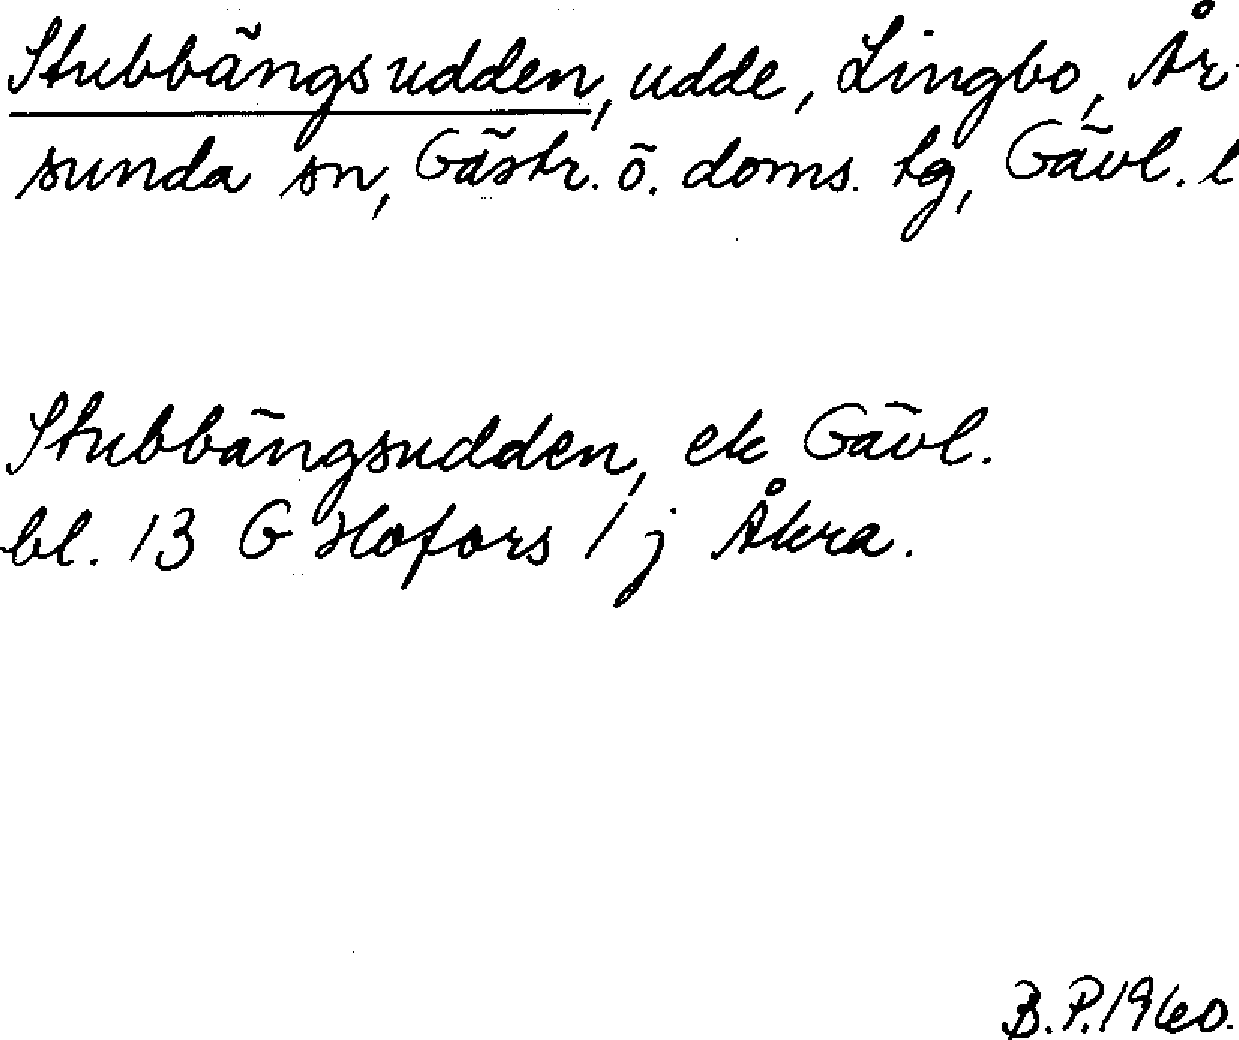 Stubbängsudden, udde, Lingbo, År-
sunda sn, Gästr. ö. doms. tg, Gävl. l
Stubbängsudden, ek Gävl.
bl. 13 G Hofors / j Åkra.
B.P. 1960.